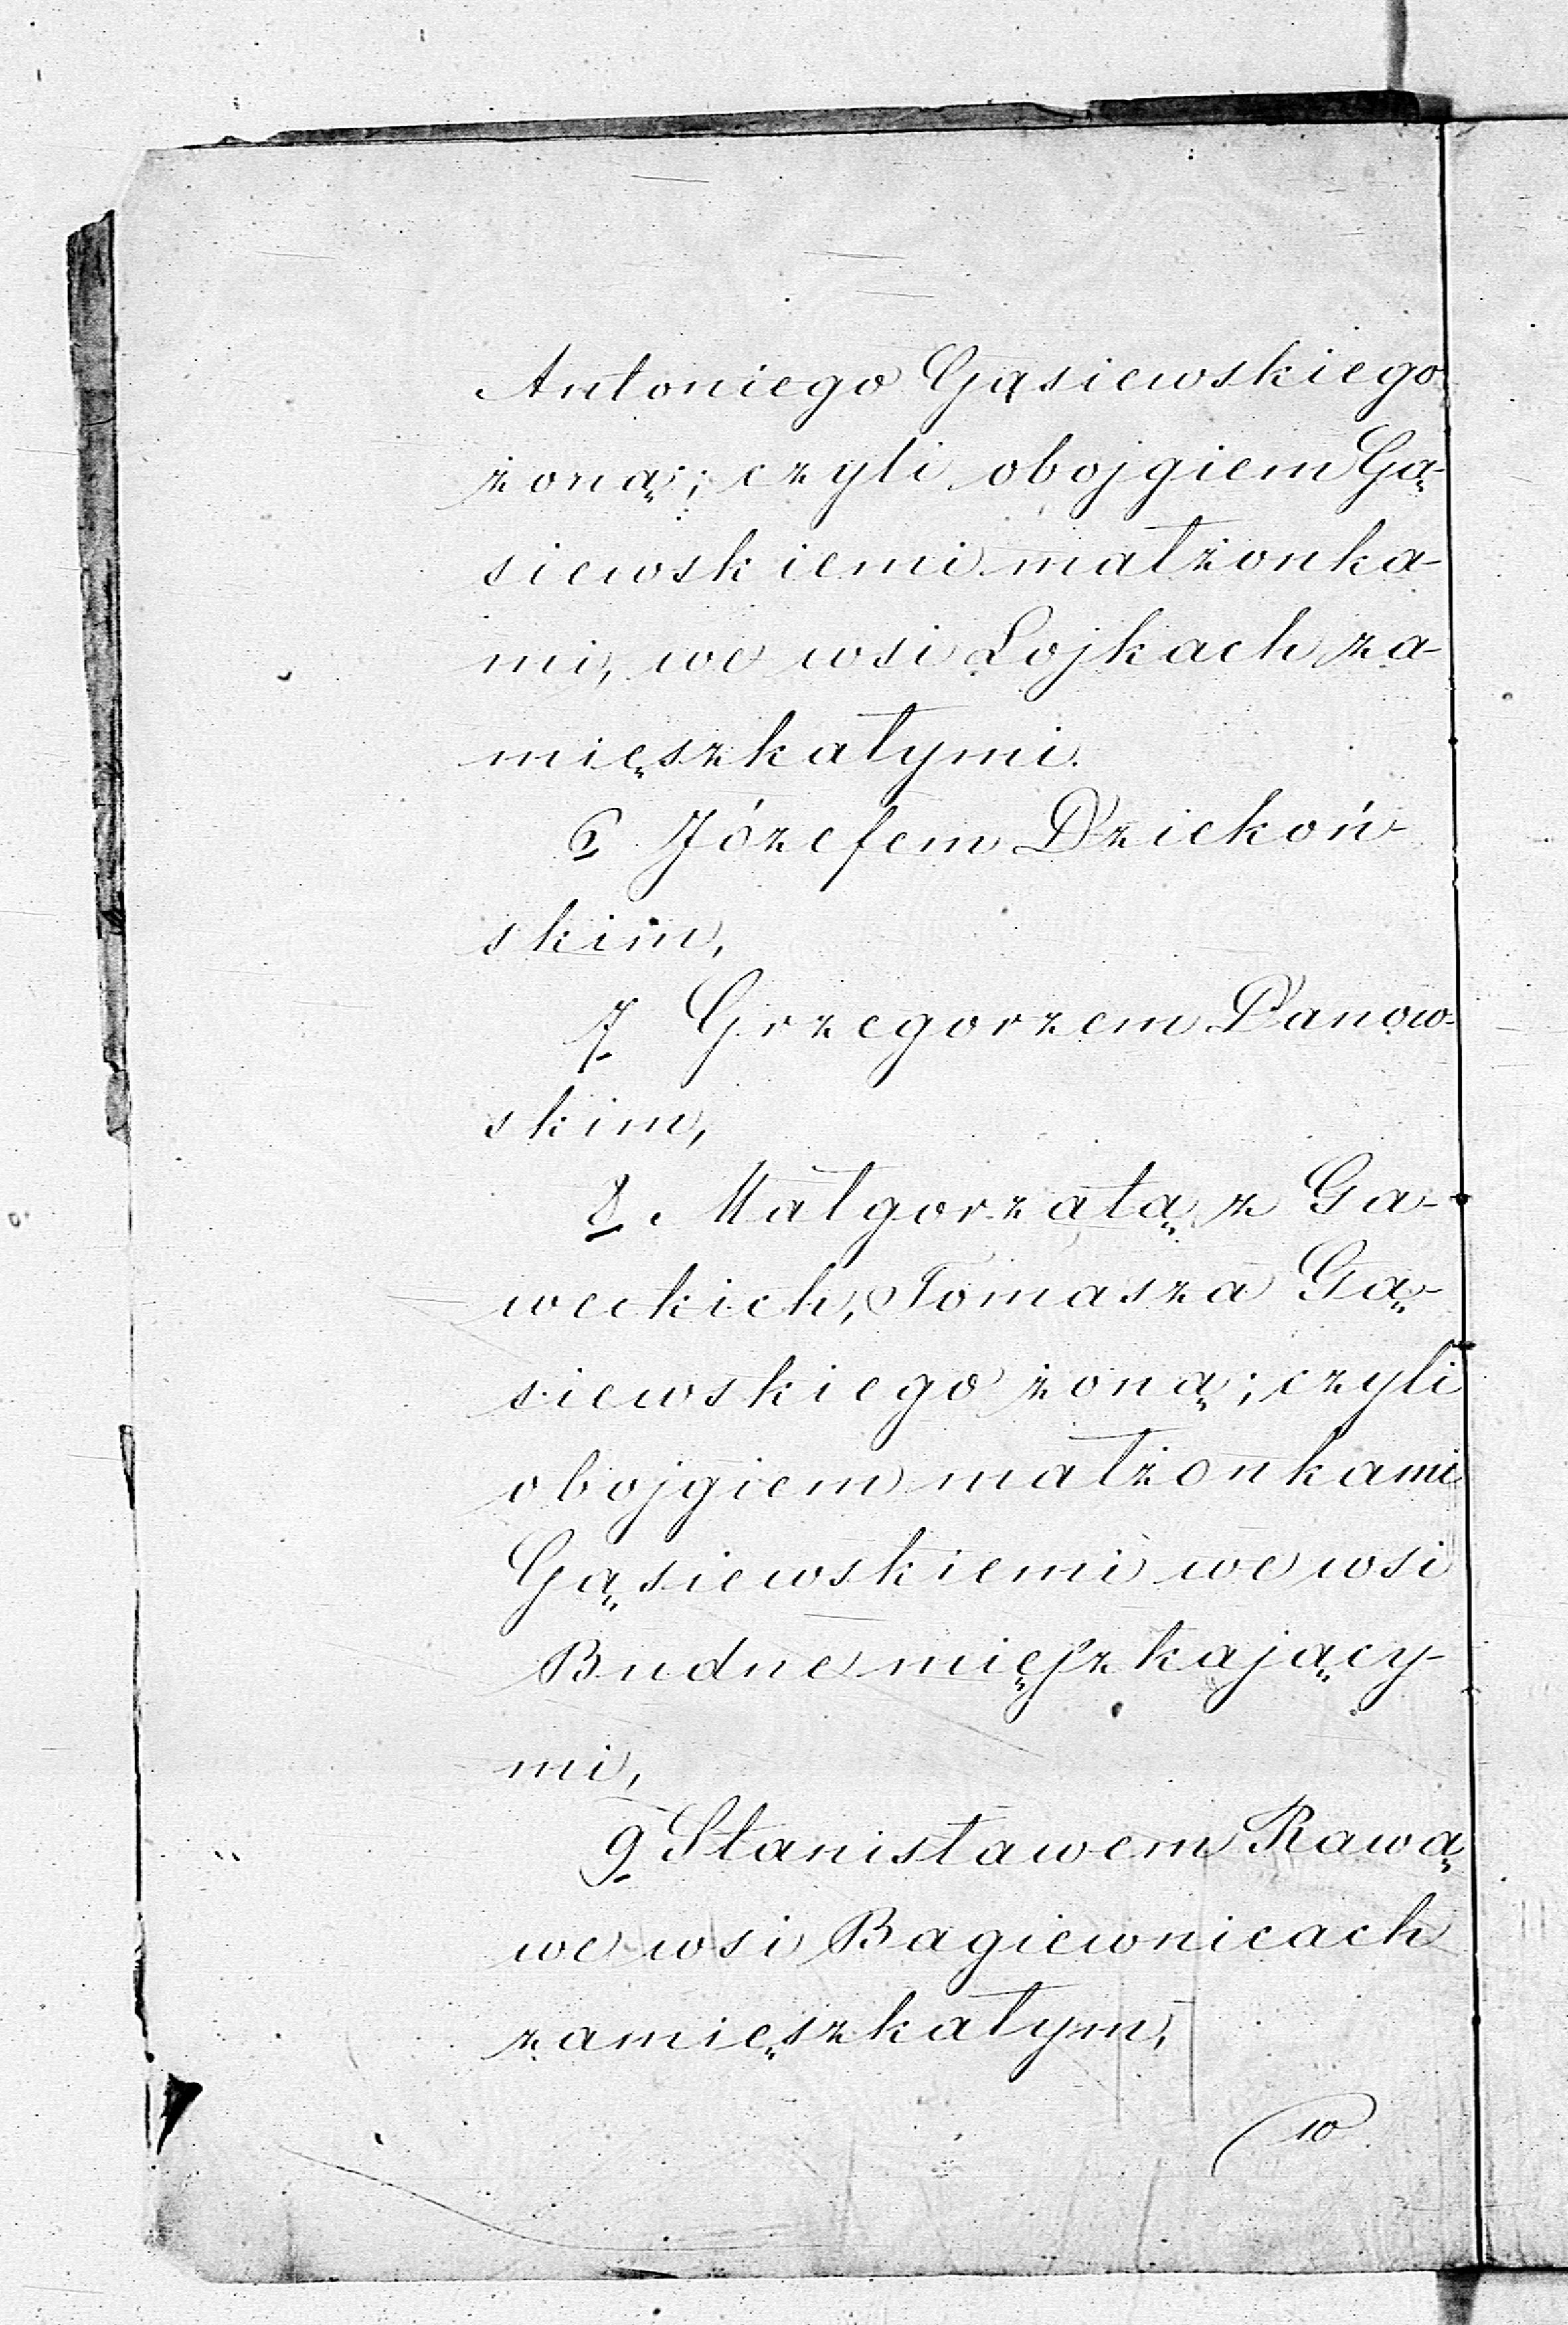 Antoniego Gąsiewskiego
żoną; czyli obojgiem Gą-
siewskiemi małżonka-
mi, we wsi Łojkach za-
mięszkałymi.
6 Józefem Dziekoń-
skim,
7 Grzegorzem Panow-
skim,
8. Małgorzatą z Ga-
weckich, Tomasza Gą-
siewskiego żoną; czyli
obojgiem małżonkami
Gąsiewskiemi we wsi
Budne mięszkający-
mi,
9 Stanisławem Rawą
we wsi Bagiewnicach
zamięszkałym,
10